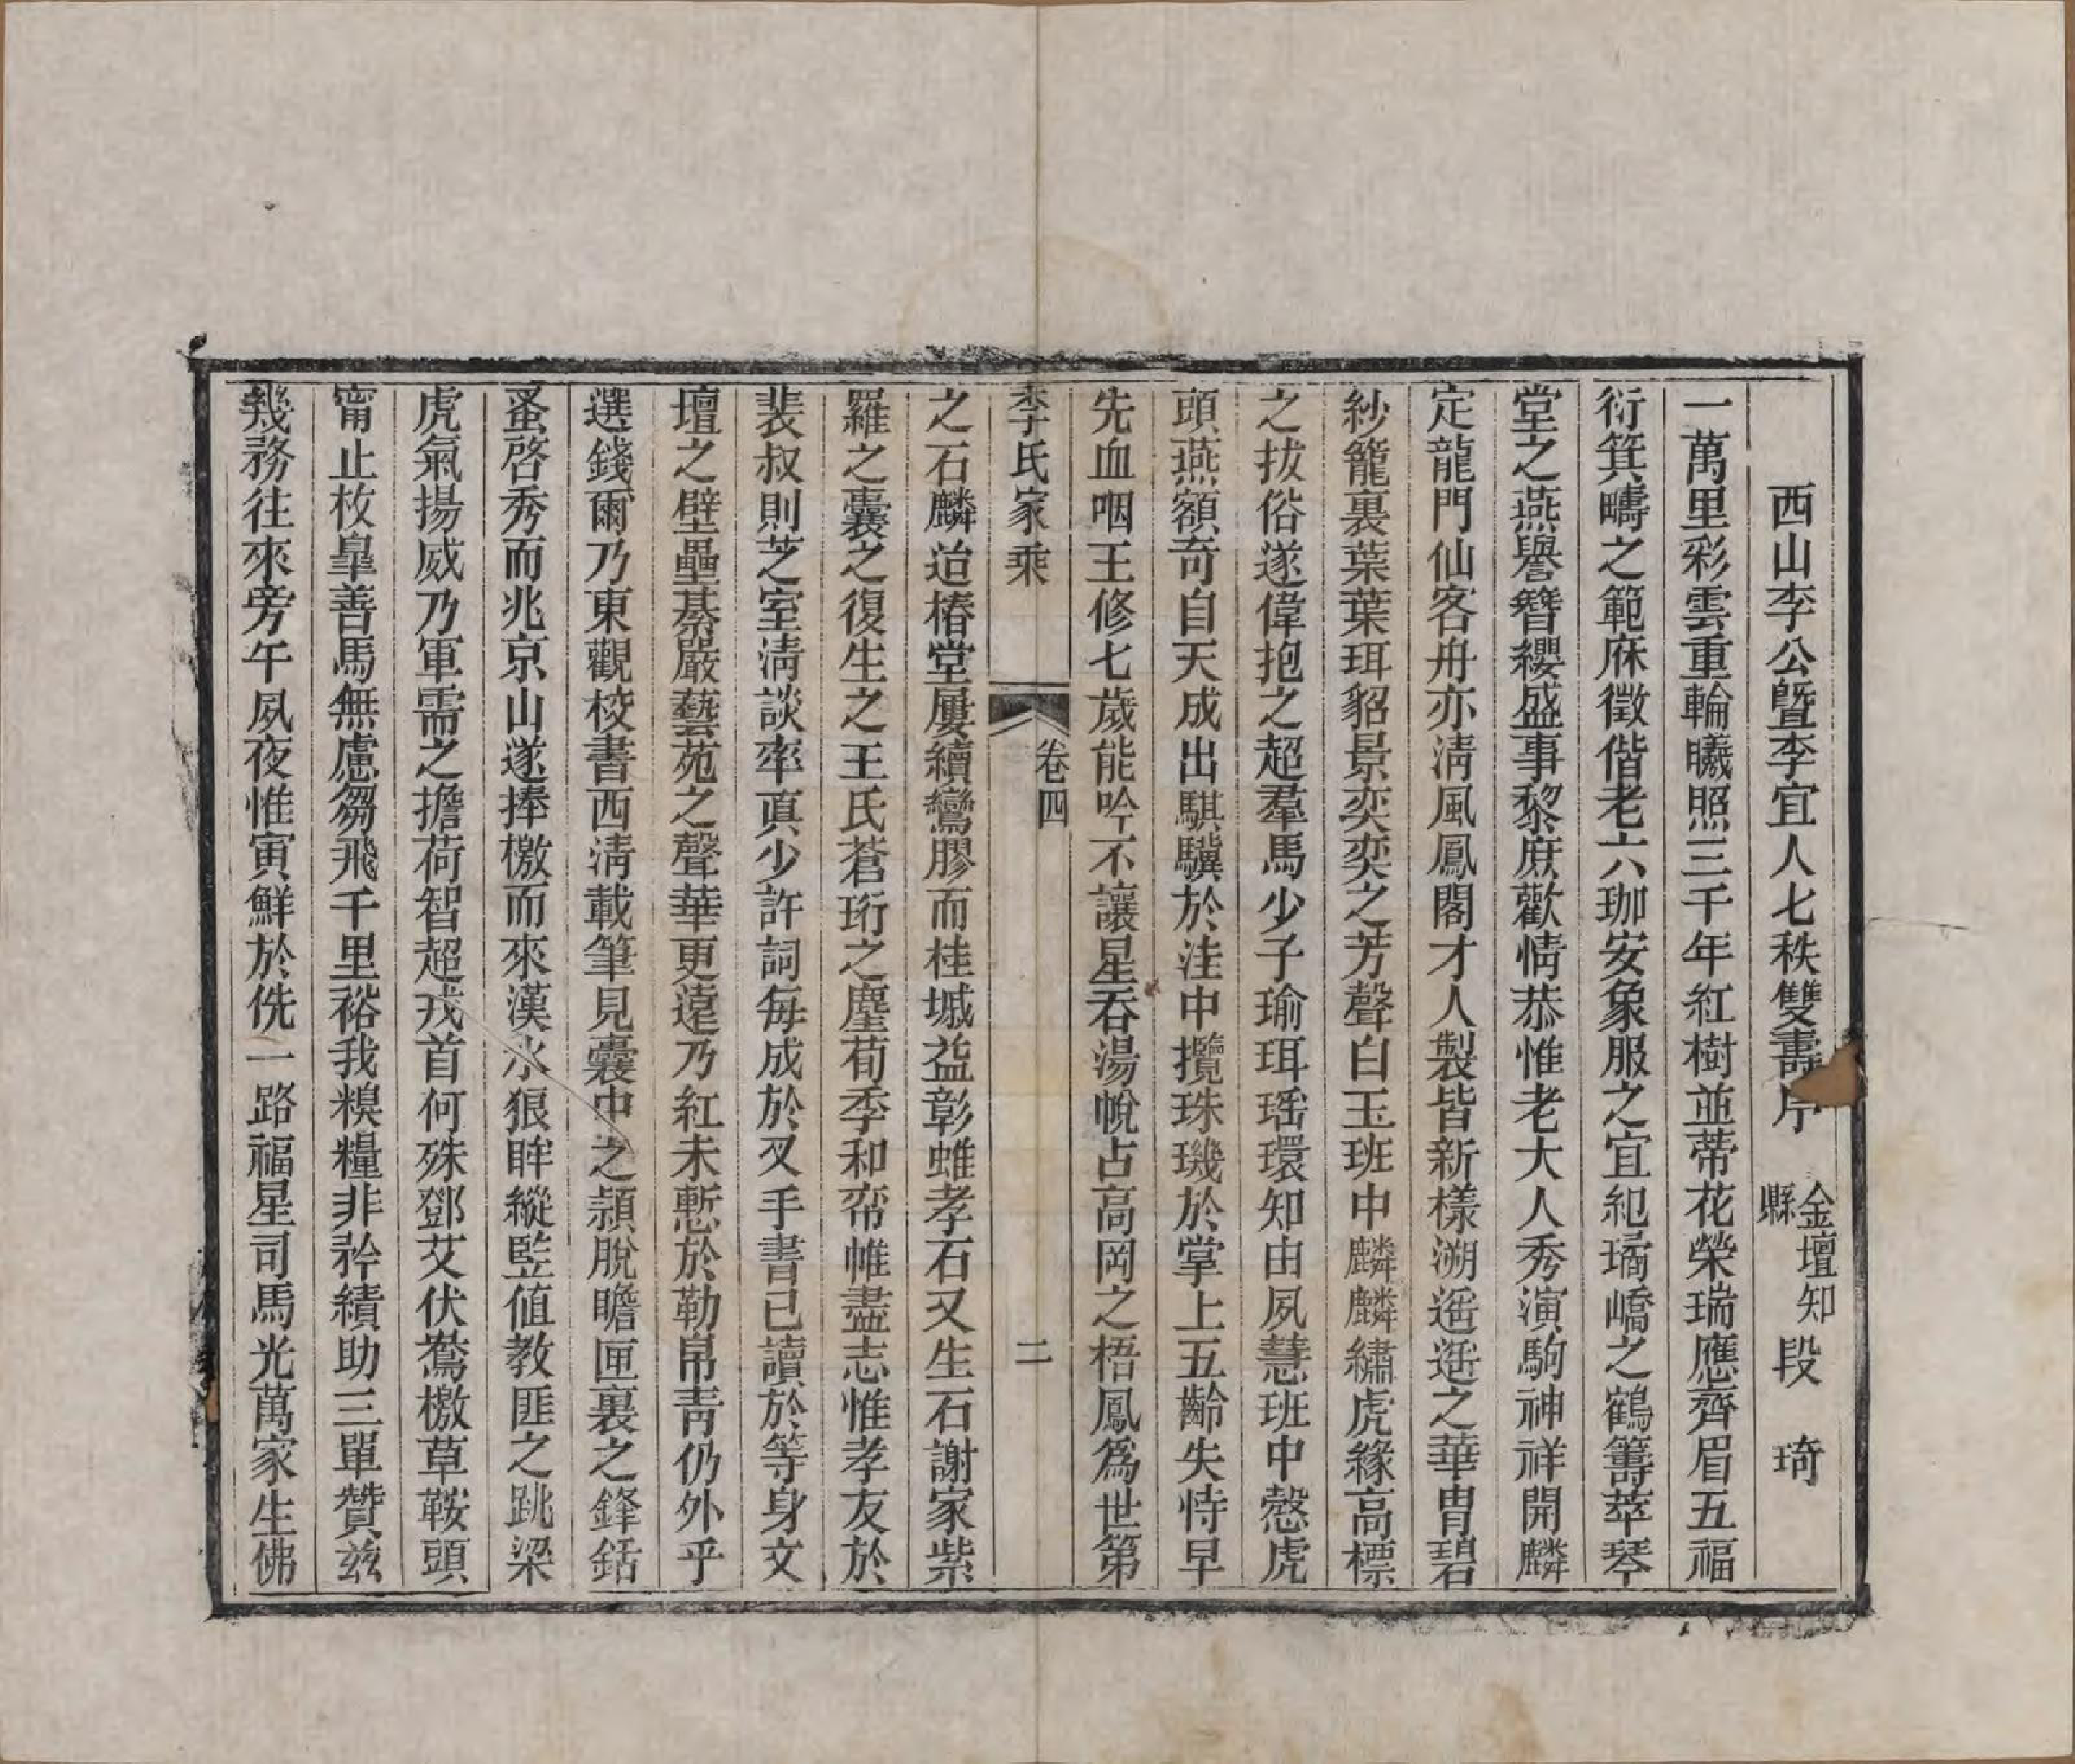 西山李公暨李宜人七秩雙壽序 金壇知縣 段 琦
一萬里彩雲重輪曦照三千年紅樹並蒂花榮瑞應齊眉五福
衍箕疇之範庥徵偕老六珈安象服之宜紀璚嶠之鶴籌萃琴
堂之燕譽簪纓盛事黎庶歡情恭惟老大人秀演駒神祥開麟
定龍門仙客舟亦淸風鳳閣才人製皆新樣溯遥遥之華胄碧
紗籠裏葉葉珥貂景奕奕之芳聲白玉班中麟麟繡虎緣高標
之拔俗遂偉抱之超羣馬少子瑜珥瑶環知由夙慧班中慤虎
頭燕額奇自天成出騏驥於洼中攬珠璣於掌上五齡失恃早
先血咽王修七歲能吟不讓星吞湯帨占高岡之梧鳳爲世第
李氏家乘 卷四 二
之石麟迨椿堂屢續鸞膠而桂墄益彰雖孝石又生石謝家紫
羅之囊之復生之王氏蒼珩之塵荀季和帟帷盡志惟孝友於
裴叔則芝室淸談率眞少許詞每成於叉手書已讀於等身文
壇之壁壘綦嚴藝苑之聲華更遠乃紅未慙於勒帛靑仍外乎
選錢爾乃東觀校書西淸載筆見囊中之頴脫瞻匣裏之鋒銛
蚤啓秀而兆京山遂捧檄而來漢水狼眸縱監值教匪之跳梁
虎氣揚威乃軍需之擔荷智超戎首何殊鄧艾伏鶩檄草鞍頭
甯止枚皋善馬無慮芻飛千里裕我糗糧非矜績助三單贊兹
幾務往來旁午夙夜惟寅鮮於侁一路福星司馬光萬家生佛